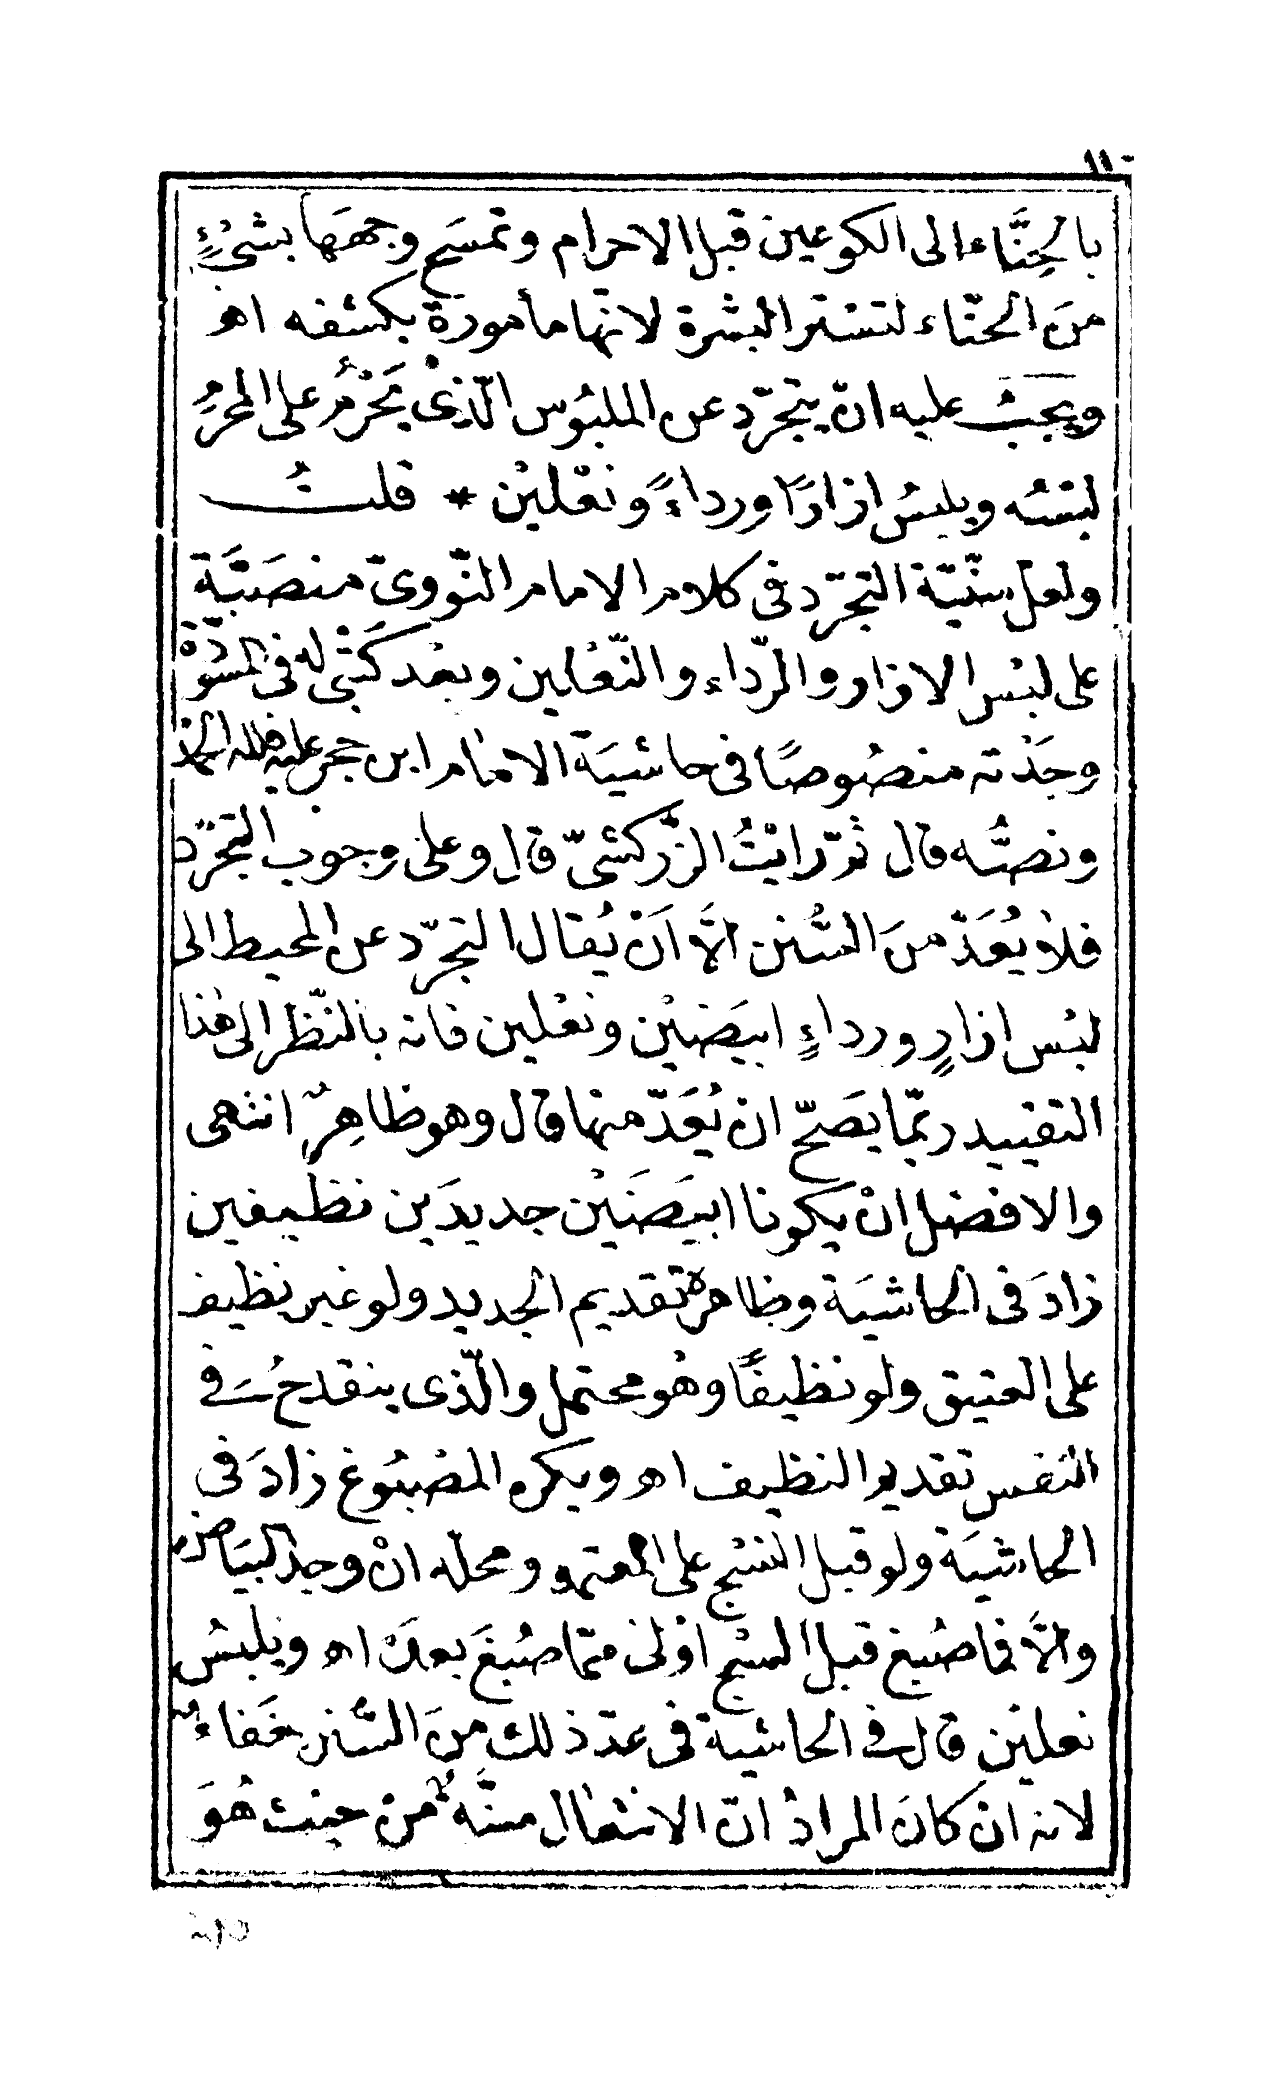 ١١٠
بالحِنَّاء الى الكوعين قبل الاحرام وتمسَح وجهَها بشىْءٍ
منَ الحنّاء لتسْتر البشَرة لانّها مأمورة بكشفه اهـ
ويجَبُ عليه انّ يتجرّد عن الملبُوس الّذىْ يَحْرُمُ على المحرمِ
لبْسُه ويلبسُ ازارًا ورداءً ونعْلين * قلتُ
ولعل سنّيّة التجرّد فى كلام الامام النّووىّ منصَبَّة
على لبْس الازار والرّداء والنّعْلين وبعْد كَتْبى له فى المسْوَدّة
وجَدْته منصُوصًا فى حاشيَة الامام ابن حجر عليه فلله الحمْد
ونصُّه قال ثمّ رايْتُ الزّركشىّ قال وعلى وجوب التجرّد
فلا يُعَدّ منَ السُّنن الَّا اَنْ يُقال التجرّد عن المحيط الى
لبْس ازارٍ ورداءٍ ابيَضيْن ونعْلين فانه بالنّظر الى هٰذا
التقييد ربمّا يصَحّ ان يُعَدّ منها قال وهو ظاهِرٌ انتهى
والافضل انْ يكونا ابيَضَيْن جديدَين نظيفين
زادَ فى الحاشيَة وظاهره تقديم الجديد ولو غير نظيف
على العتيق ولو نظيفًا وهُو محتمل والّذى ينقدحُ فى
النفس تقديم النظيف اهـ ويكره المصْبُوغ زادَ فى
الحاشيَة ولو قبل النسْج على المعتمد ومحلّه انْ وجد البيَاض
والَّا فما صُبغ قبل النسْج اوْلى ممّا صُبغَ بعدَهْ اهـ ويلبسُ
نعليْن قال فى الحاشية فى عدّ ذلك منَ السُّنن خَفاءٌ
لانه انْ كانَ المرادُ انّ الانتعال سنَّةٌ منْ حيْث هُوَ